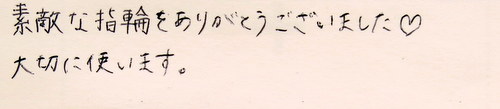 素敵な指輪をありがとうございました♡
大切に使います。